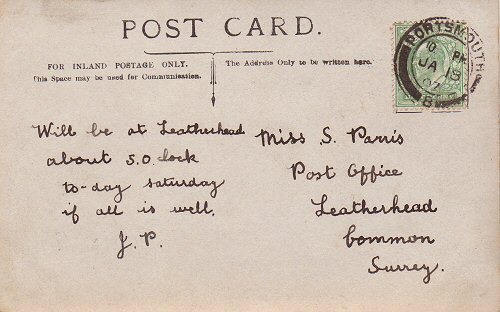 POST CARD.
FOR INLAND POSTAGE ONLY.
This Space may be used for Communication.
The Address Only to be written here.
PORTSMOUTH
10 PM
JA 18
07
Will be at Leatherhead
about 5.0 clock
to-day saturday
if all is well.
J. P.
Miss S. Parris
Post Office
Leatherhead
Common
Surrey.